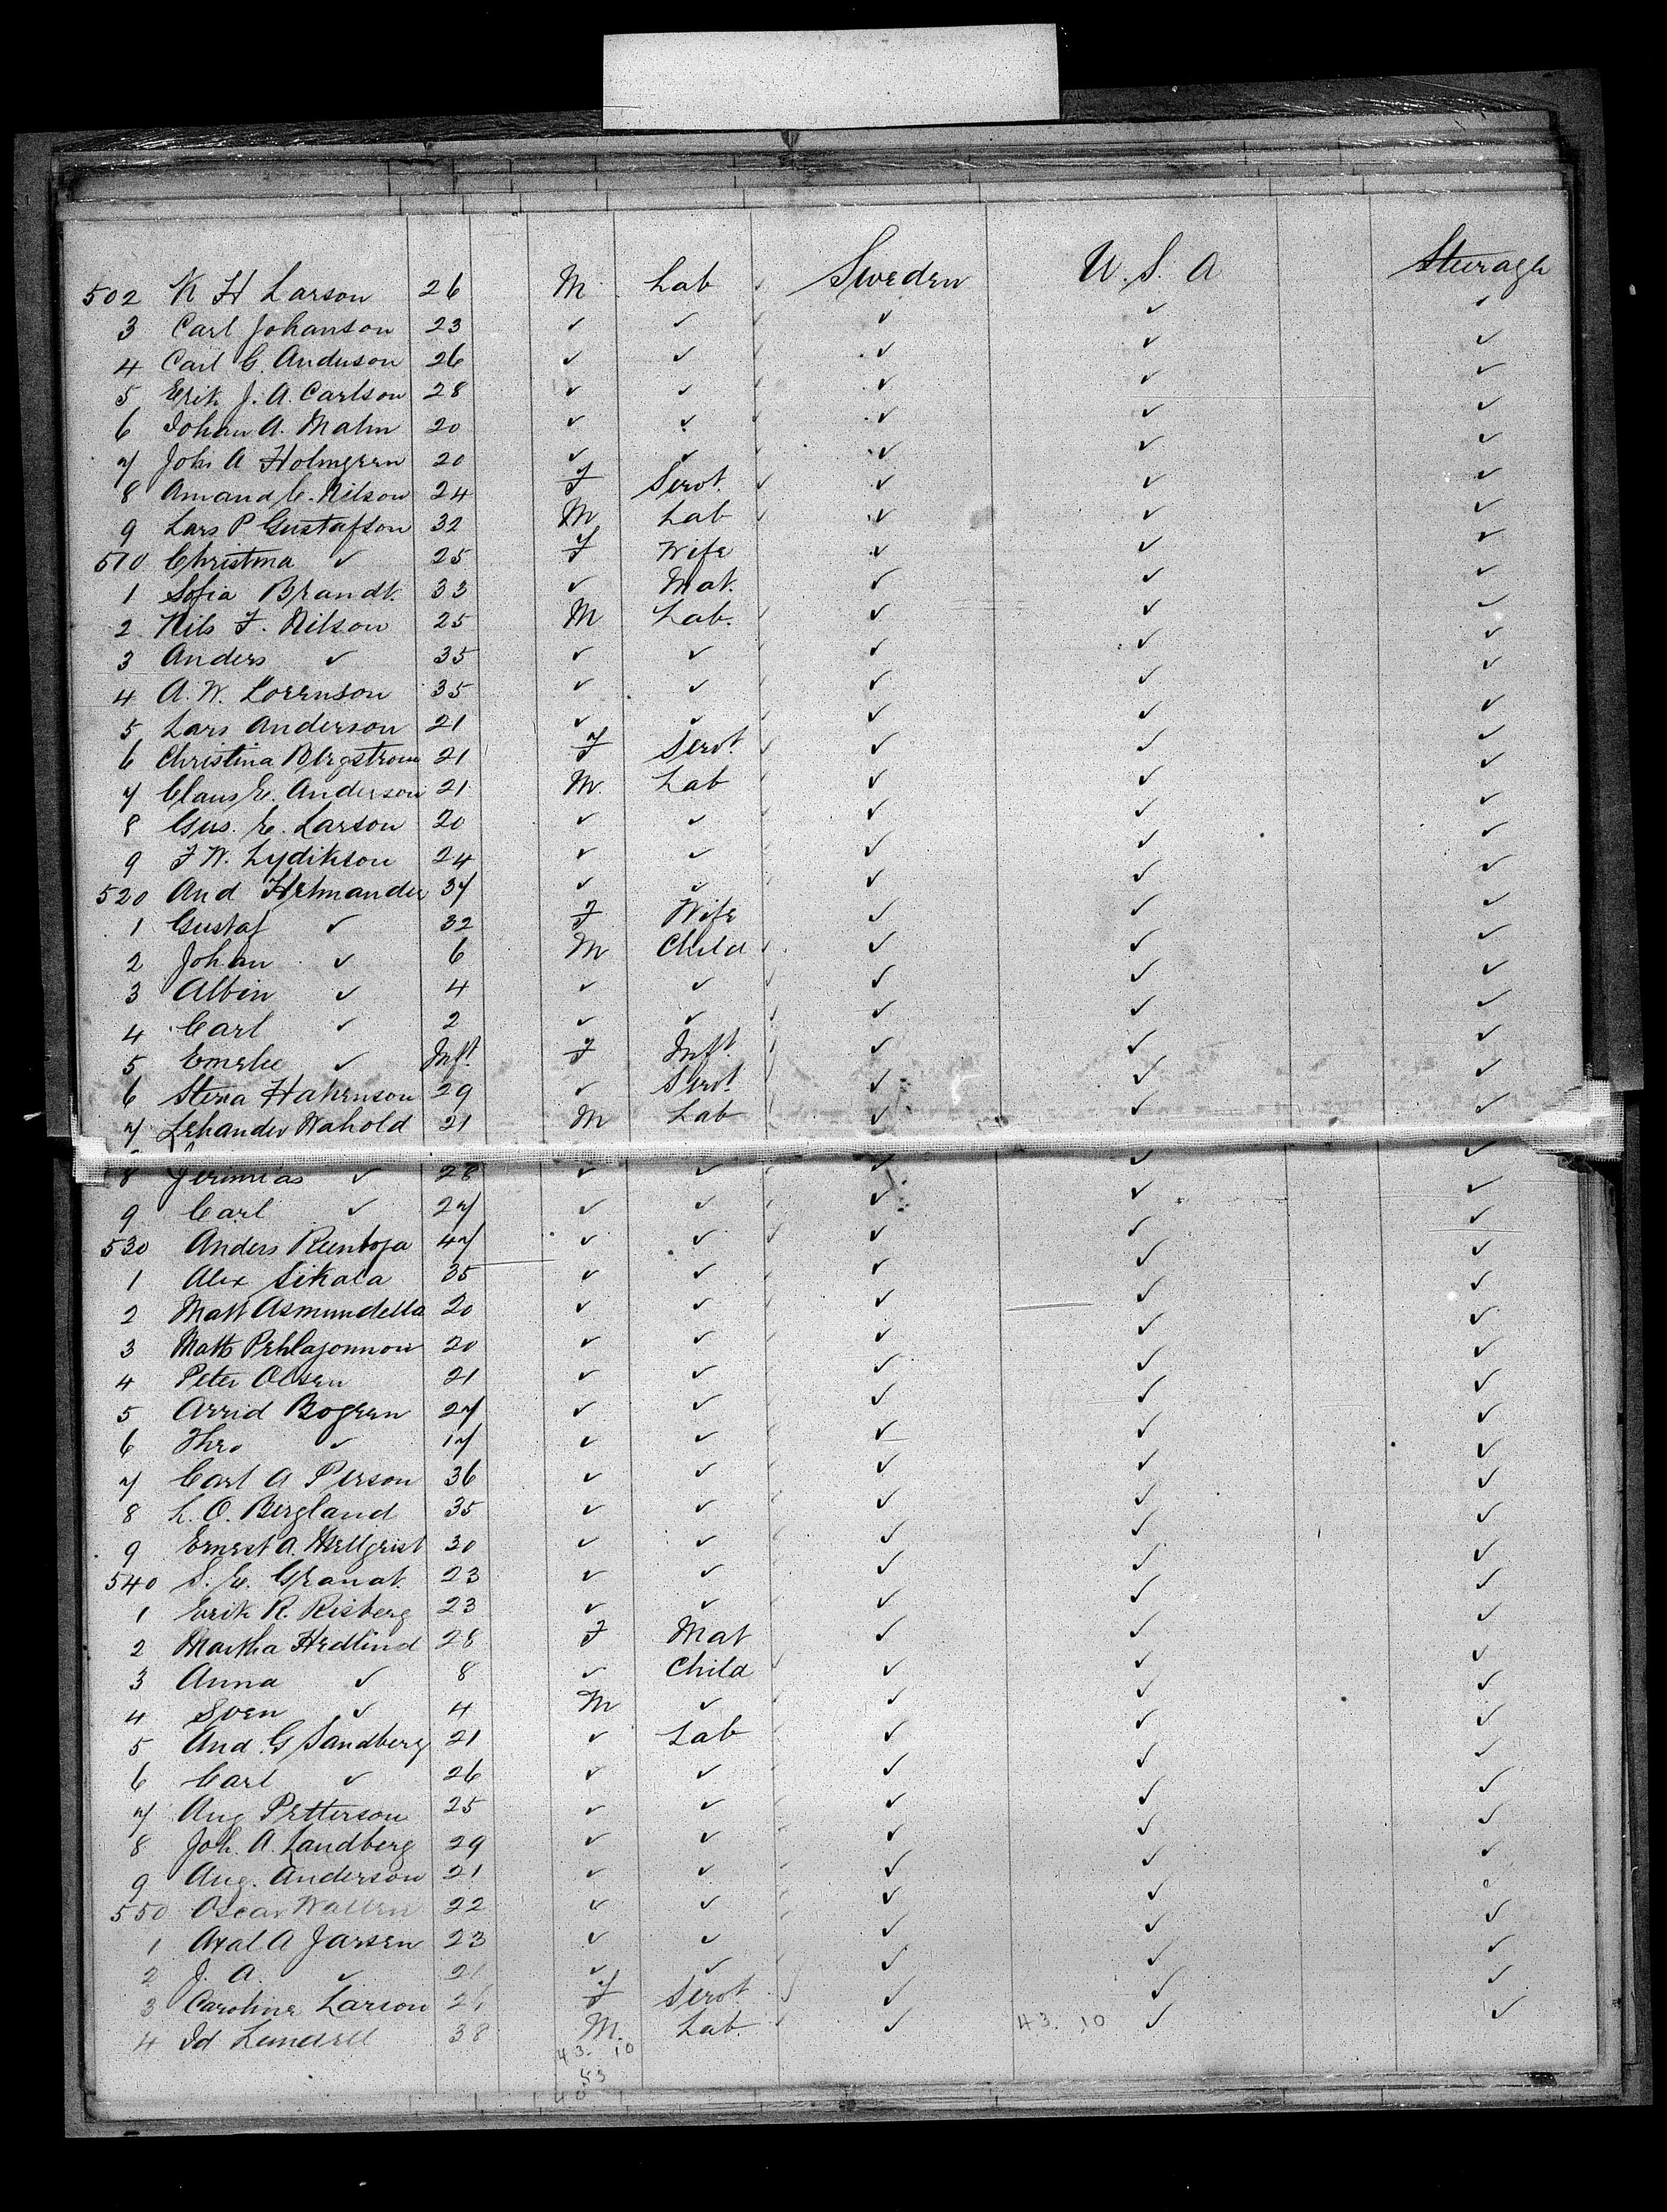 502 K H Larson 26 M Lab ✓ Sweden U. S. A Steerage
3 Carl Johanson 23 ✓ ✓ ✓ ✓ ✓ ✓
4 Carl G. Anderson 26 ✓ ✓ ✓ ✓ ✓ ✓
5 Erik J. A. Carlson 28 ✓ ✓ ✓ ✓ ✓ ✓
6 Johan A. Malm 20 ✓ ✓ ✓ ✓ ✓ ✓
7 Joh A Holmgren 20 ✓ ✓ ✓ ✓ ✓ ✓
8 Amand C. Nilson 24 F Servt. ✓ ✓ ✓ ✓
9 Lars P. Gustafson 32 M Lab ✓ ✓ ✓ ✓
510 Christina ✓ 25 F Wife ✓ ✓ ✓
1 Sofia Brandt. 33 ✓ Mat. ✓ ✓ ✓
2 Nils F. Nilson 25 M Lab. ✓ ✓ ✓ ✓
3 Anders ✓ 35 ✓ ✓ ✓ ✓ ✓ ✓
4 A. W. Lorenson 35 ✓ ✓ ✓ ✓ ✓ ✓
5 Lars Anderson 21 ✓ ✓ ✓ ✓ ✓ ✓
6 Christina Bergstrom 21 F Servt. ✓ ✓ ✓ ✓
7 Claus E. Anderson 21 M. Lab ✓ ✓ ✓ ✓
8 Gus. E. Larson 20 ✓ ✓ ✓ ✓ ✓ ✓
9 F W. Lydikson 24 ✓ ✓ ✓ ✓ ✓ ✓
520 And Helmander 37 ✓ ✓ ✓ ✓ ✓ ✓
1 Gustaf ✓ 32 F Wife ✓ ✓ ✓
2 Johan ✓ 6 M Child ✓ ✓ ✓ ✓
3 Albin ✓ 4 ✓ ✓ ✓ ✓ ✓ ✓
4 Carl ✓ 2 ✓ ✓ ✓ ✓ ✓ ✓
5 Emelie ✓ Inft. F Inft. ✓ ✓ ✓ ✓
6 Stena Hakenson 29 ✓ Servt. ✓ ✓ ✓ ✓
7 Lehander Wahold 21 M Lab ✓ ✓ ✓ ✓
8 Jerimeas ✓ 28 ✓ ✓ ✓ ✓ ✓
9 Carl ✓ 27 ✓ ✓ ✓ ✓ ✓ ✓
530 Anders 47 ✓ ✓ ✓ ✓ ✓ ✓
1 Alex Sikala 35 ✓ ✓ ✓ ✓ ✓ ✓
2 Matt Asmundella 20 ✓ ✓ ✓ ✓ ✓ ✓
3 Matts 20 ✓ ✓ ✓ ✓ ✓ ✓
4 Peter Olsen 21 ✓ ✓ ✓ ✓ ✓ ✓
5 Arrid Bogren 27 ✓ ✓ ✓ ✓ ✓ ✓
6 ✓ 17 ✓ ✓ ✓ ✓ ✓ ✓
7 Carl A Person 36 ✓ ✓ ✓ ✓ ✓ ✓
8 L. O. Bergland 35 ✓ ✓ ✓ ✓ ✓ ✓
9 Ernest A. Hellgrist 30 ✓ ✓ ✓ ✓ ✓ ✓
540 S. E. Granat. 23 ✓ ✓ ✓ ✓ ✓ ✓
1 Erik R. Risberg 23 ✓ ✓ ✓ ✓ ✓ ✓
2 Martha Hedlind 28 F Mat ✓ ✓ ✓
3 Anna ✓ 8 ✓ Child ✓ ✓ ✓ ✓
4 Sven ✓ 4 M ✓ ✓ ✓ ✓ ✓
5 And. G Sandberg 21 ✓ Lab ✓ ✓ ✓ ✓
6 Carl ✓ 26 ✓ ✓ ✓ ✓ ✓ ✓
7 Aug Petterson 25 ✓ ✓ ✓ ✓ ✓ ✓
8 Joh. A. Landberg 29 ✓ ✓ ✓ ✓ ✓ ✓
9 Aug. Anderson 21 ✓ ✓ ✓ ✓ ✓ ✓
550 Oscar Wallen 22 ✓ ✓ ✓ ✓ ✓ ✓
1 Axal A Jarsen 23 ✓ ✓ ✓ ✓ ✓ ✓
2 J. A. ✓ 21 ✓ ✓ ✓ ✓ ✓ ✓
3 Caroline Larson 26 F Servt ✓ ✓ ✓ ✓
4 Id Lundell 38 M. Lab. ✓ 43. 10 ✓ ✓
43. 10
53
40